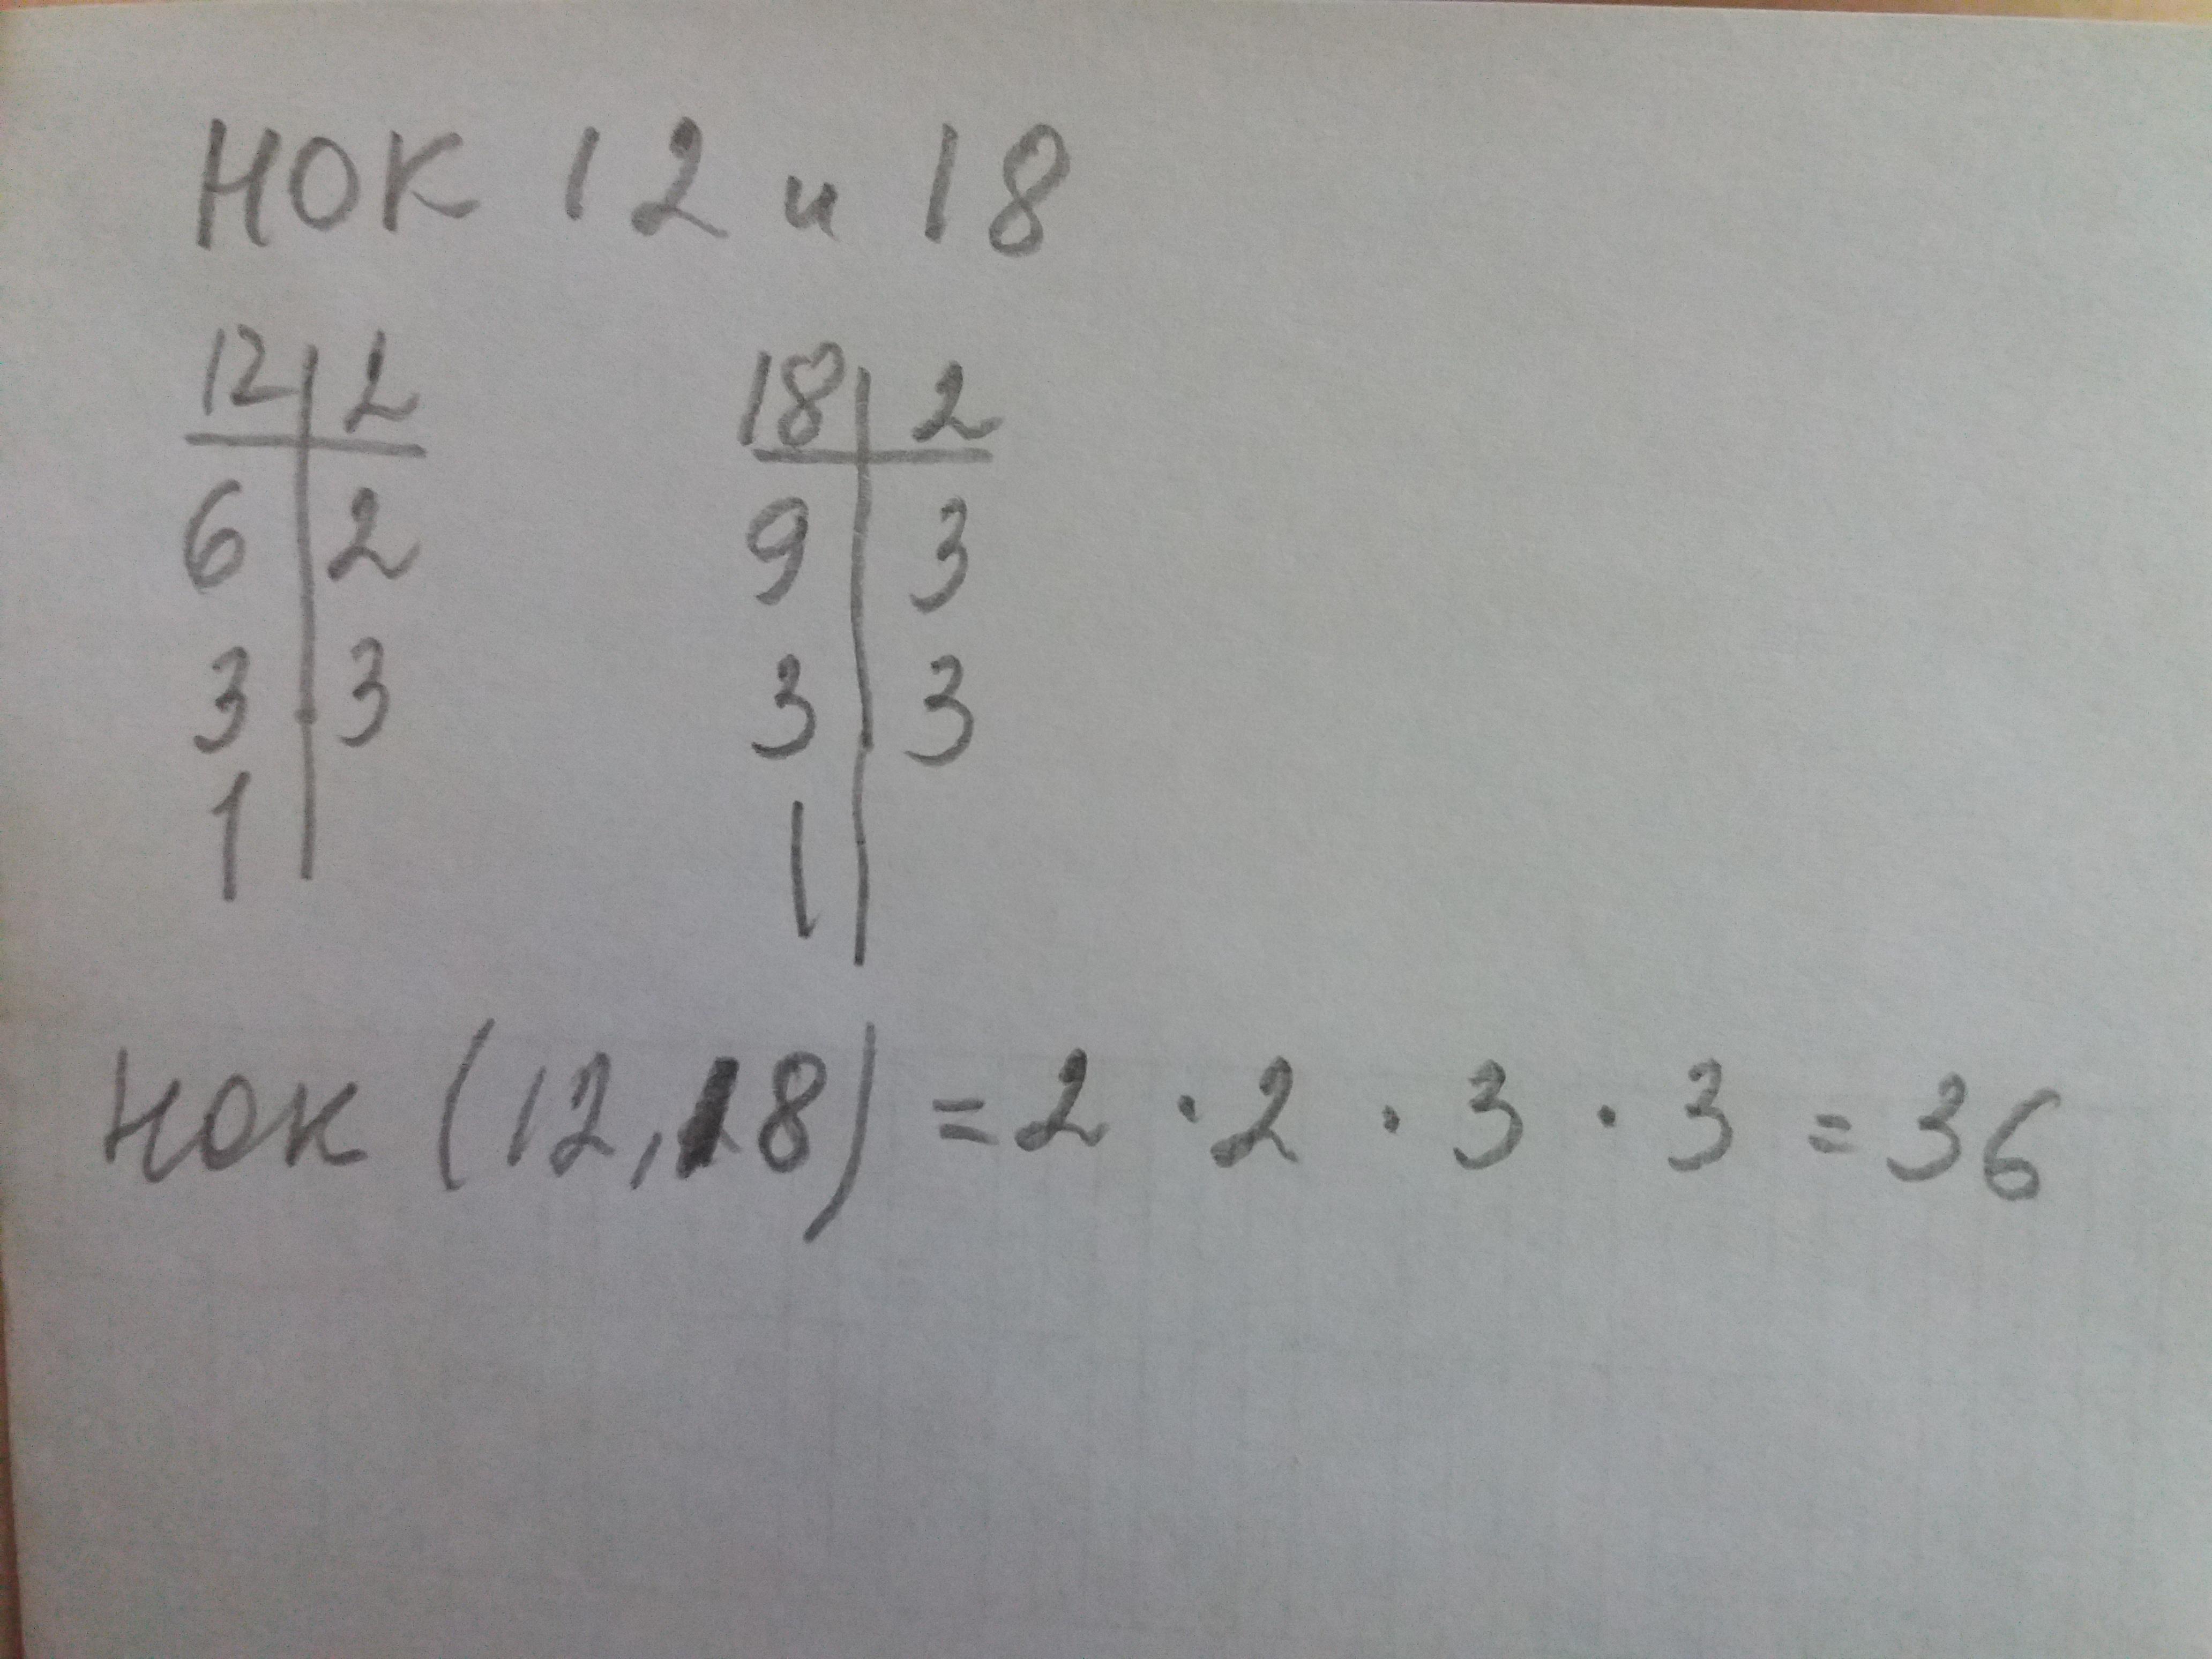 НОК 12 и 18
12 | 2 18 | 2
6 | 2 9 | 3
3 | 3 3 | 3
1 | 1 |
НОК (12, 18) = 2 · 2 · 3 · 3 = 36